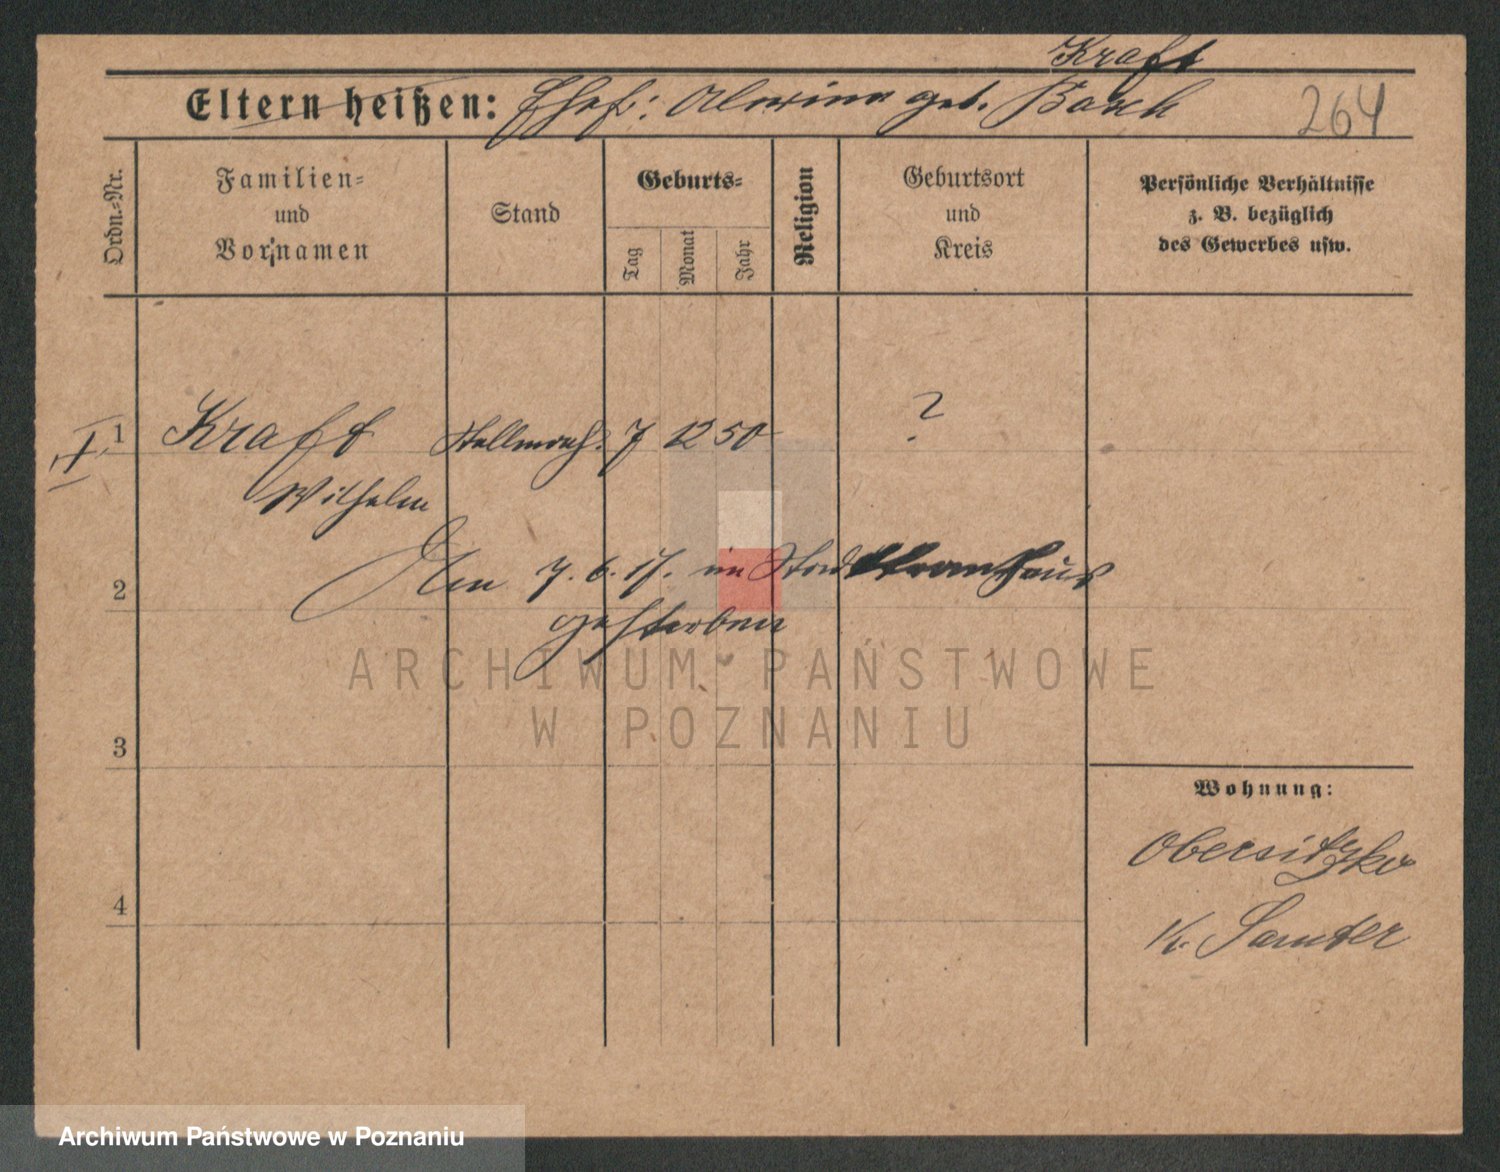 Kraft
Eltern heißen: Ehef: Alwine geb. Bach
264
Ordn.=Nr.
Familien=
und
Vornamen
Stand
Geburts=
Tag
Monat
Jahr
Religion
Geburtsort
und
Kreis
Persönliche Verhältnisse
z. B. bezüglich
des Gewerbes usw.
I.
1 Kraft Stellmach. 7 12 50 ?
Wilhelm
2 Am 7. 6. 17. im Stadtkrankhaus
gestorben
ARCHIWUM PAŃSTWOWE
W POZNANIU
3
Wohnung:
Obersitzko
4
K. Samter
Archiwum Państwowe w Poznaniu